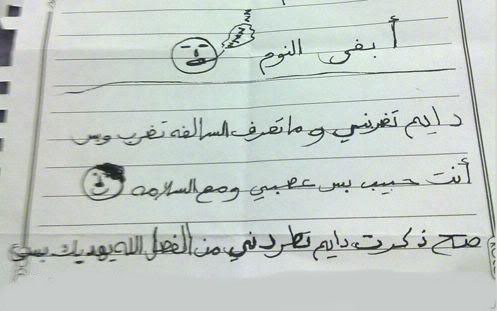 أبغى النوم
دايم تضربني وما تعرف السالفه تضرب وبس
أنت حبيب بس عصبي ومع السلامه
صح ذكرت دايم تطردني من الفصل الله يهديك بس